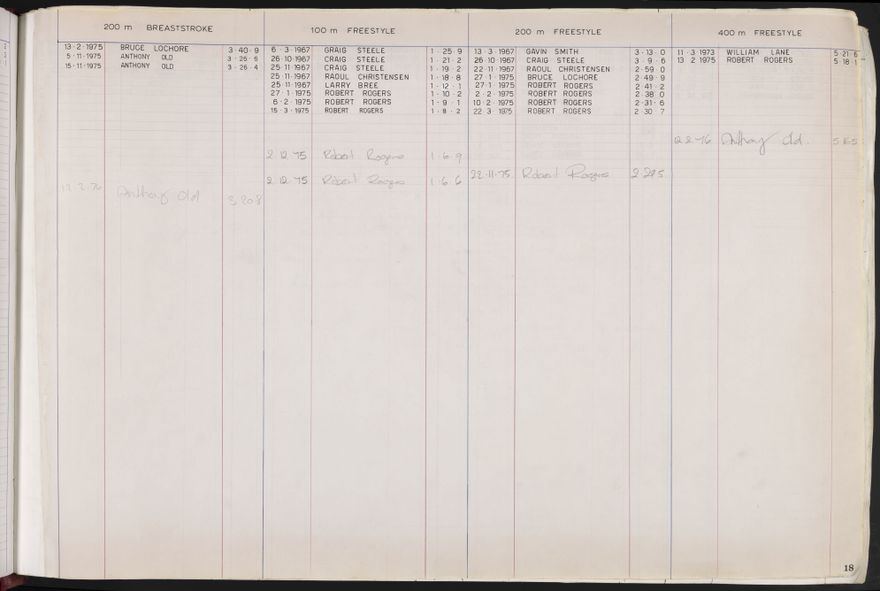 200 m BREASTSTROKE
13·2·1975 BRUCE LOCHORE 3·40·9
5·11·1975 ANTHONY OLD 3·26·6
15·11·1975 ANTHONY OLD 3·26·4
Anthony Old 3 20 8
100 m FREESTYLE
6·3·1967 GRAIG STEELE 1·25·9
26·10·1967 CRAIG STEELE 1·21·2
25·11·1967 CRAIG STEELE 1·19·2
25·11·1967 RAOUL CHRISTENSEN 1·18·8
25·11·1967 LARRY BREE 1·12·1
27·1·1975 ROBERT ROGERS 1·10·2
6·2·1975 ROBERT ROGERS 1·9·1
15·3·1975 ROBERT ROGERS 1·8·2
2·12·75 Robert Rogers 1·6·9
2·12·75 Robert Rogers 1·6·6
200 m FREESTYLE
13·3·1967 GAVIN SMITH 3·13·0
26·10·1967 CRAIG STEELE 3·9·6
22·11·1967 RAOUL CHRISTENSEN 2·59·0
27·1·1975 BRUCE LOCHORE 2·49·9
27·1·1975 ROBERT ROGERS 2·41·2
2·2·1975 ROBERT ROGERS 2·38·0
10·2·1975 ROBERT ROGERS 2·31·6
22·3·1975 ROBERT ROGERS 2·30·7
22·11·75 Robert Rogers
400 m FREESTYLE
11·3·1973 WILLIAM LANE 5·21·6
13·2·1975 ROBERT ROGERS 5·18·1
12·2·76 Anthony Old.
18